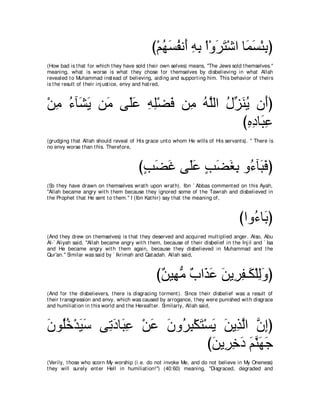 (بِئْسَمَا اشْتَرَوْاْ بِهِ أَنفُسَهُمْ)
(How bad is that for which they have sold their own selves) means, "The Jews sold themselves."
meaning, what is worse is what they chose for themselves by disbelieving in what Allah
revealed to Muhammad instead of believing, aiding and supporting him. This behavior of theirs
is the result of their injustice, envy and hatred,
(أَن يُنَزِّلُ اللَّهُ مِن فَضْلِهِ عَلَى مَن يَشَآءُ مِنْ
عِبَادِهِ)
(grudging that Allah should reveal of His grace unto whom He wills of His servants). " There is
no envy worse than this. Therefore,
(فَبَآءُو بِغَضَبٍ عَلَى غَضَبٍ)
(So they have drawn on themselves wrath upon wrath). Ibn `Abbas commented on this Ayah,
"Allah became angry with them because they ignored some of the Tawrah and disbelieved in
the Prophet that He sent to them." I (Ibn Kathir) say that the meaning of,
(بَاءُوا)
(And they drew on themselves) is that they deserved and acquired multiplied anger. Also, Abu
Al-`Aliyah said, "Allah became angry with them, because of their disbelief in the Injil and `Isa
and He became angry with them again, because they disbelieved in Muhammad and the
Qur'an." Similar was said by `Ikrimah and Qatadah. Allah said,
(وَلِلْكَـفِرِينَ عَذَابٌ مُّهِينٌ)
(And for the disbelievers, there is disgracing torment). Since their disbelief was a result of
their transgression and envy, which was caused by arrogance, they were punished with disgrace
and humiliation in this world and the Hereafter. Similarly, Allah said,
(إِنَّ الَّذِينَ يَسْتَكْبِرُونَ عَنْ عِبَادَتِى سَيَدْخُلُونَ
جَهَنَّمَ دَخِرِينَ)
(Verily, those who scorn My worship (i.e. do not invoke Me, and do not believe in My Oneness)
they will surely enter Hell in humiliation!") (40:60) meaning, "Disgraced, degraded and